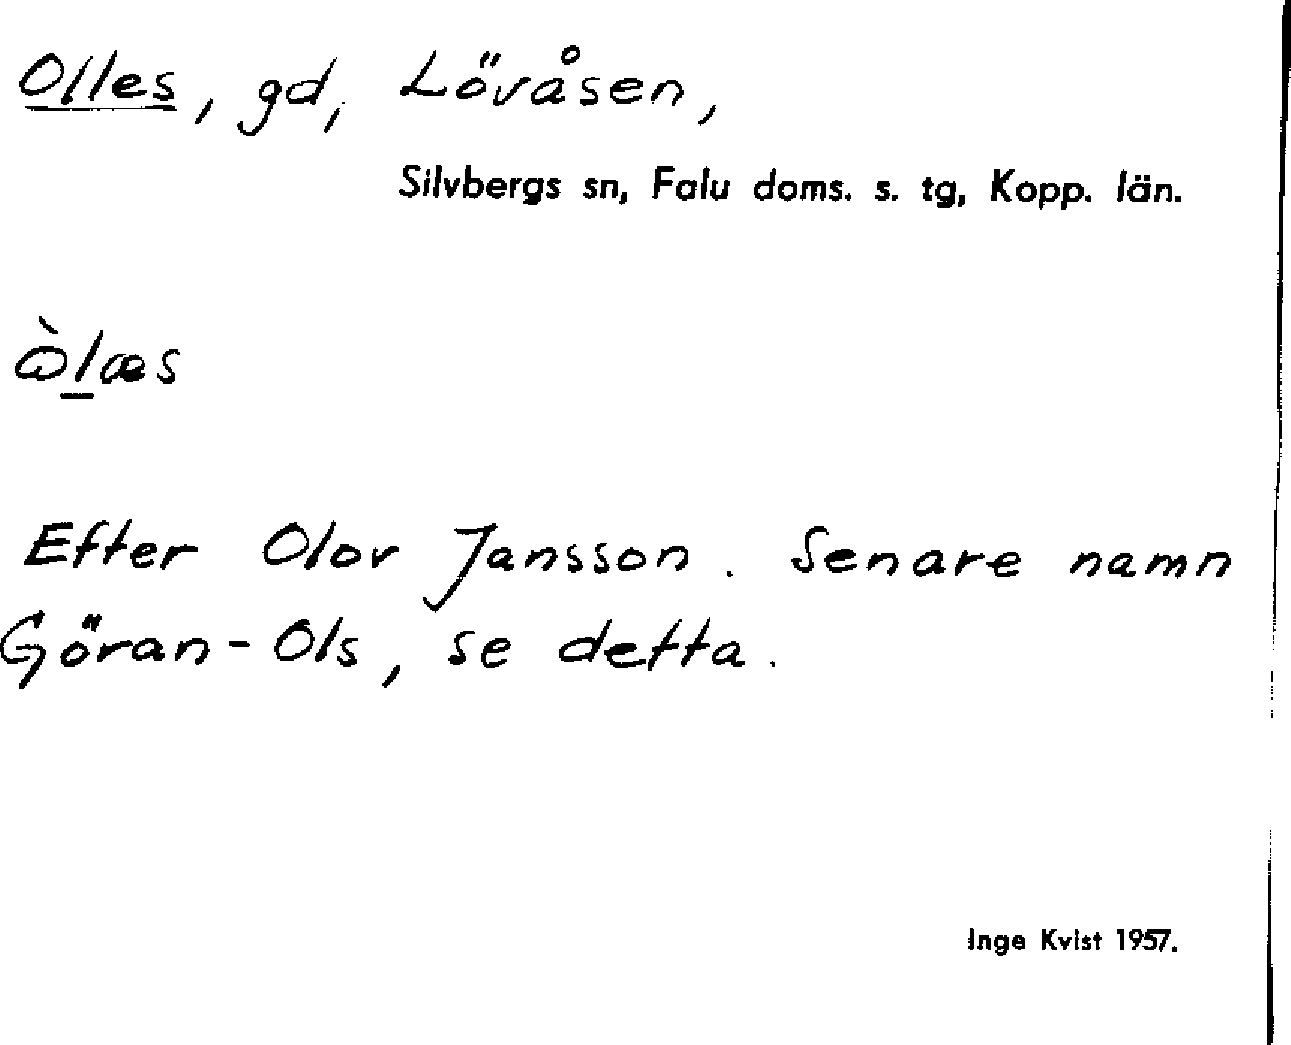 Olles, gd, Lövåsen,
Silvbergs sn, Falu doms. s. tg, Kopp. län.
ò̀læs
Efter Olov Jansson. Senare namn
Göran-Ols, se detta.
Inge Kvist 1957.